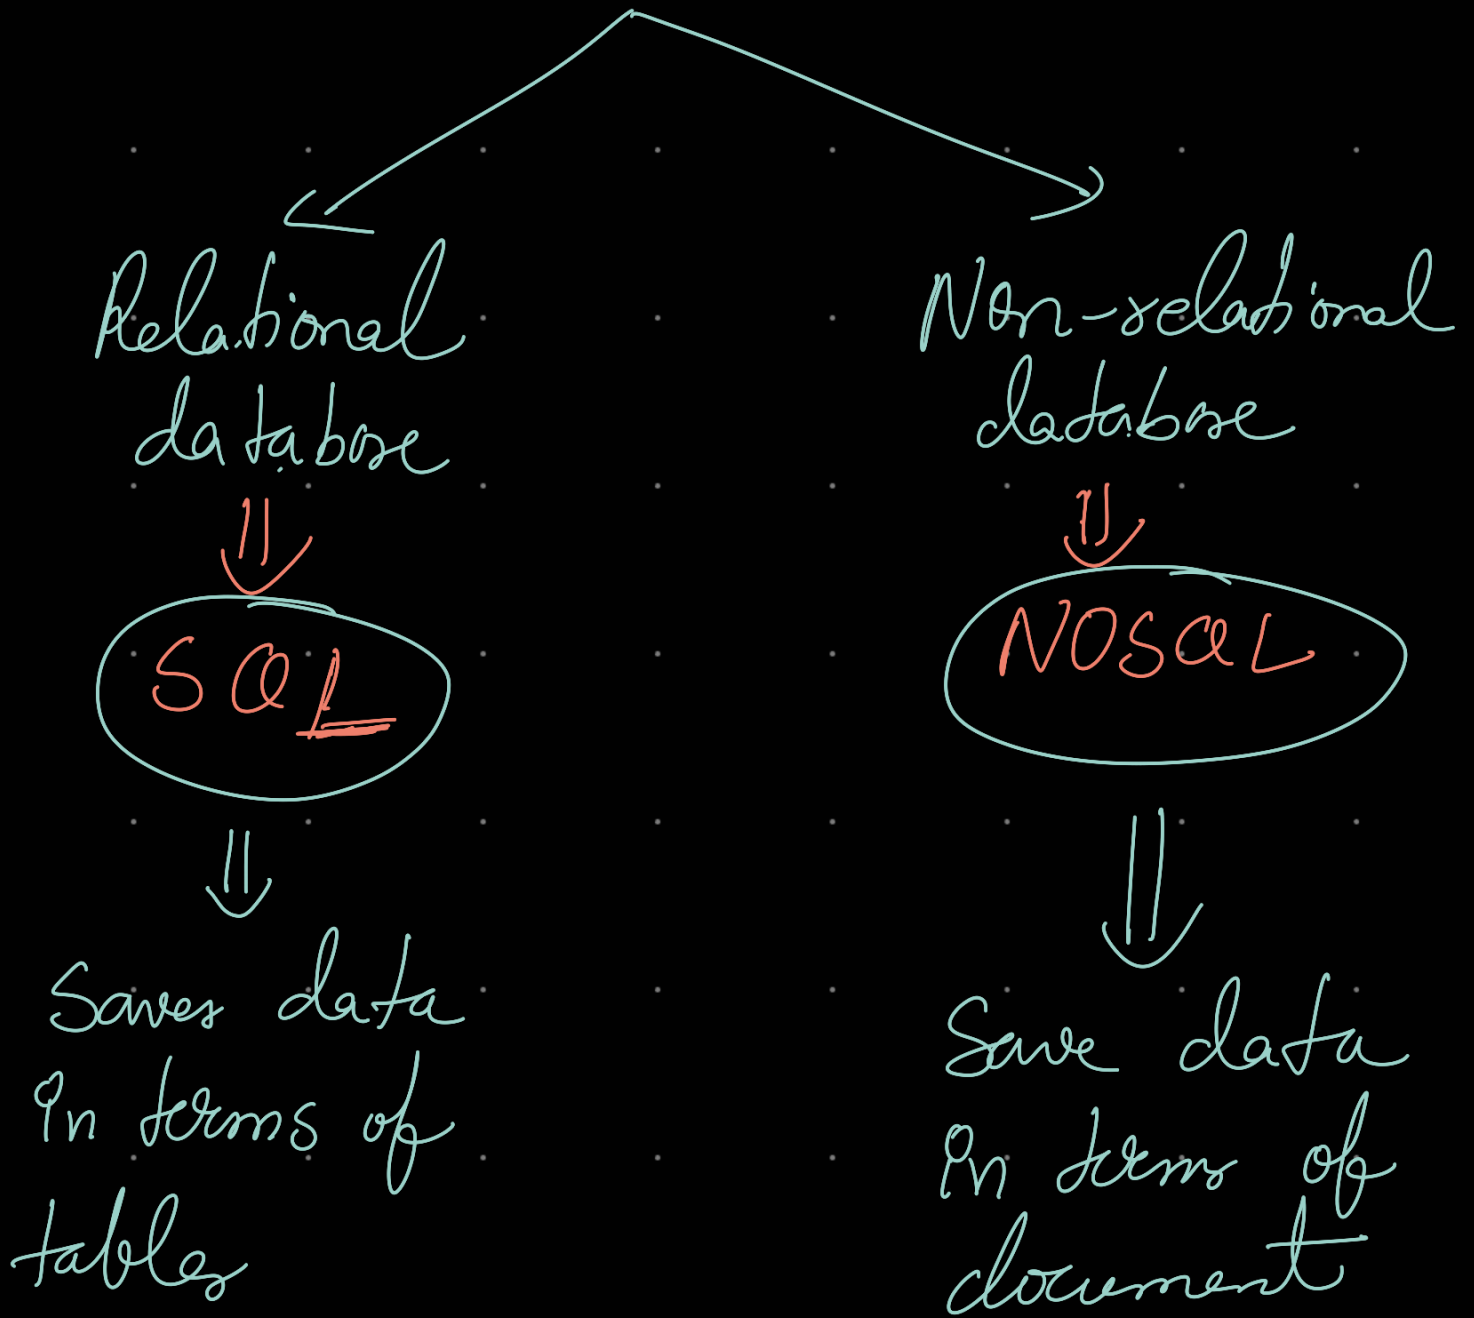 Relational
database
SQL
Saves data
in terms of
tables
Non-relational
database
NOSQL
Save data
in terms of
document